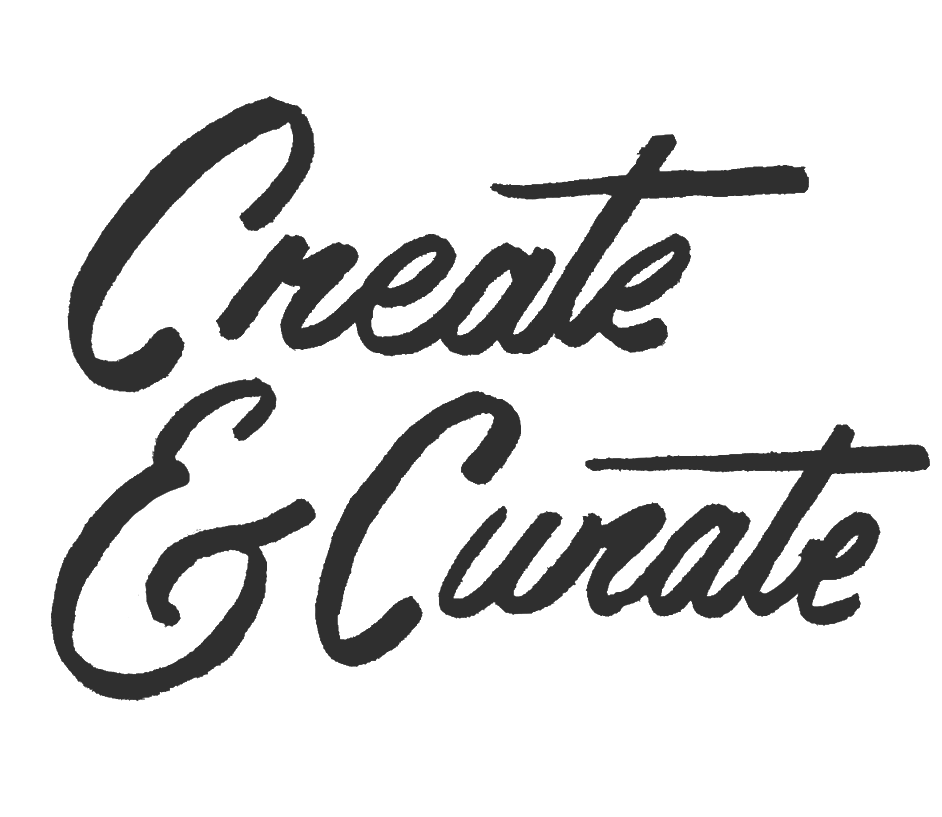 Create
& Curate